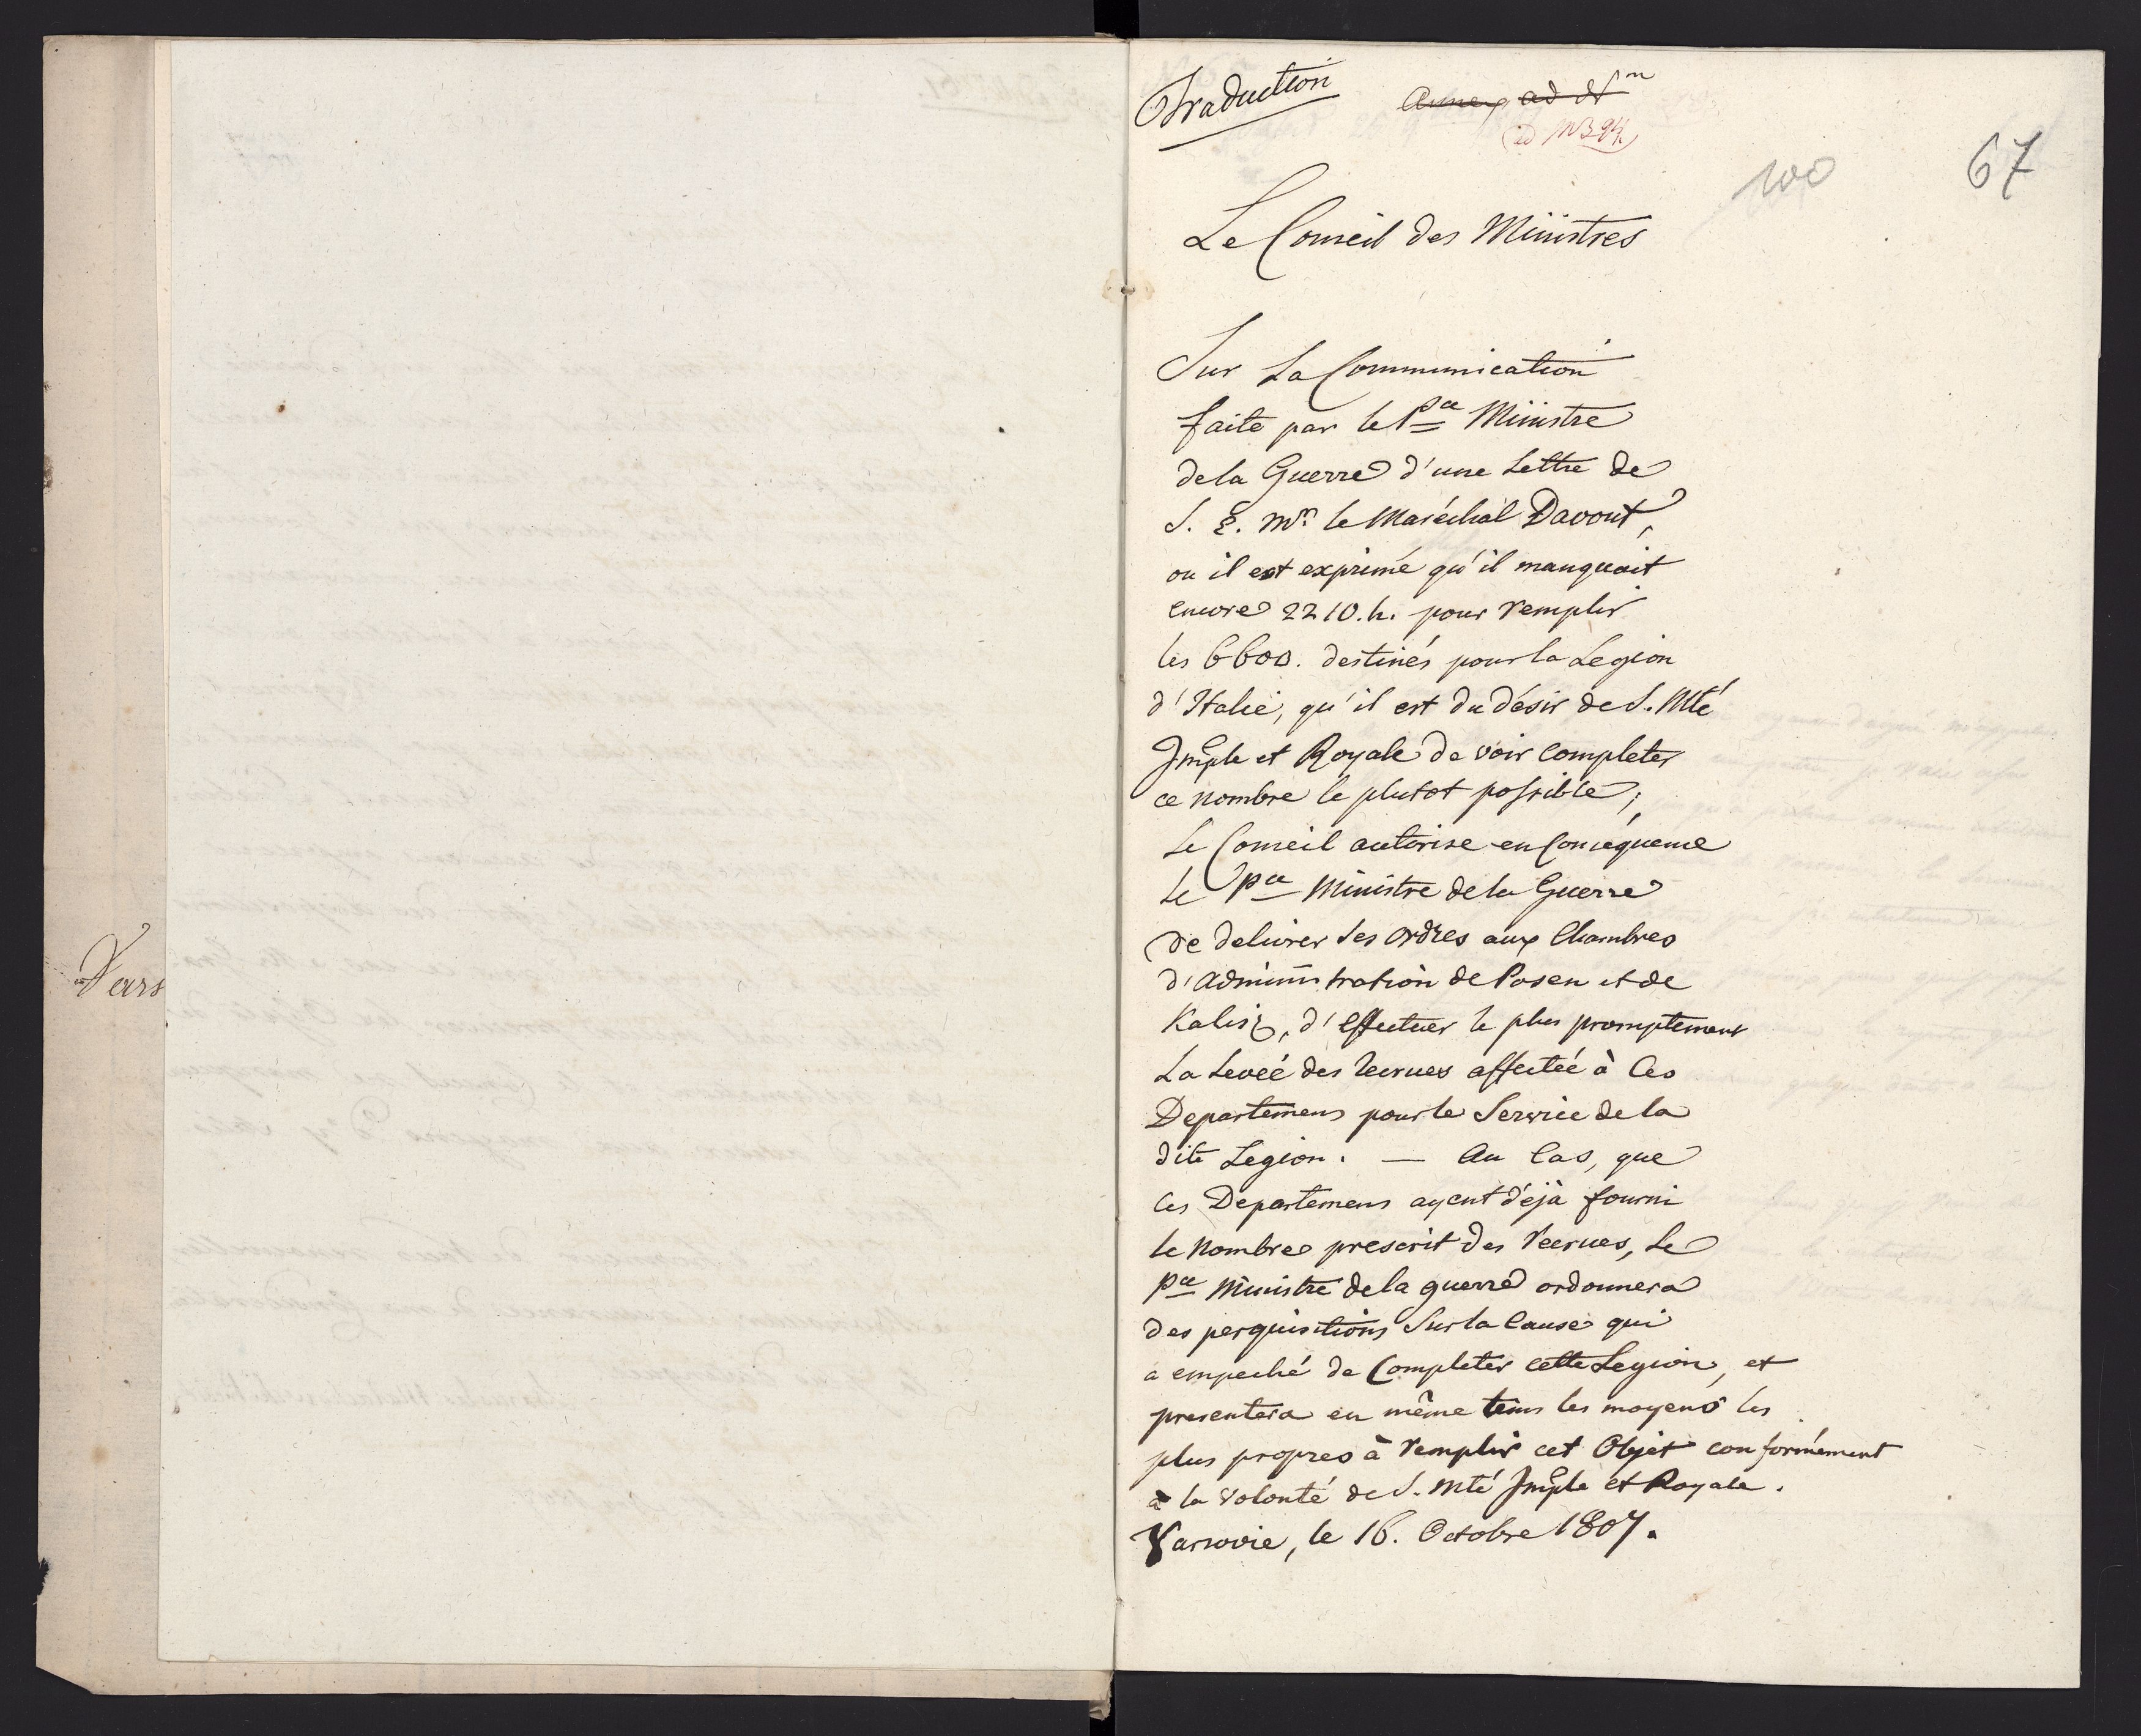 Vars
Traduction
Annex ad Nm
ad N 394.
100
67
Le Conseil des Ministres
Sur La Communication
faite par le Pce Ministre
de la Guerre d'une Lettre de
S. E. Mr. le Maréchal Davout,
ou il est exprimé qu'il manquait
encore 2210. h. pour remplir
les 6600. destinés pour la Legion
d'Italie, qu'il est du désir de S. Mté
Imple et Royale de voir completer
ce nombre le plutot possible;
Le Conseil autorise en Conséquence
le Pce Ministre de la Guerre
de delivrer des ordres aux Chambres
d'Administration de Posen et de
Kalisz, d'effectuer le plus promptement
La Levée des recrues affectée à Ces
Departemens pour le Service de la
dite Legion. — Au Cas, que
Ces Departemens ayent déjà fourni
le nombre prescrit des recrues, Le
Pce Ministre de la guerre ordonnera
des perquisitions Sur la Cause qui
a empeché de Completer cette Legion, et
presentera en même tems les moyens les
plus propres à remplir cet Objet conformément
à la volonté de S. Mté Imple et Royale.
Varsovie, le 16. Octobre 1807.